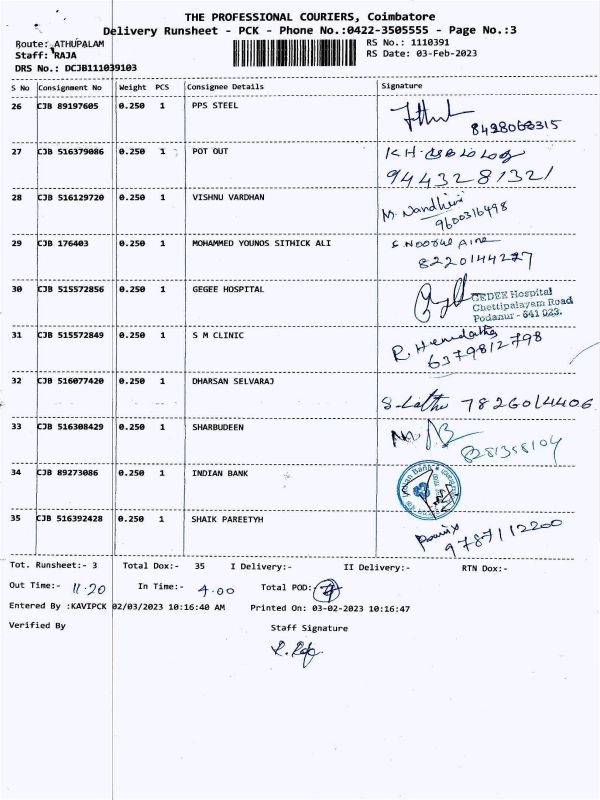 THE PROFESSIONAL COURIERS, Coimbatore
Delivery Runsheet - PCK - Phone No.:0422-3505555 - Page No.:3
Route: ATHUPALAM
RS No.: 1110391
Staff: RAJA
RS Date: 03-Feb-2023
DRS No.: DCJB111039103
S No Consignment No Weight PCS Consignee Details Signature
26 CJB 89197605 0.250 1 PPS STEEL
27 CJB 516379086 0.250 1 POT OUT
9443281321
28 CJB 516129720 0.250 1 VISHNU VARDHAN
M. Nandhini
9600316498
29 CJB 176403 0.250 1 MOHAMMED YOUNOS SITHICK ALI
8220144227
30 CJB 515572856 0.250 1 GEGEE HOSPITAL
GEDEE Hospital
Chettipalayam Road
Podanur - 641 023.
31 CJB 515572849 0.250 1 S M CLINIC
R. Hemalatha
6379812798
32 CJB 516077420 0.250 1 DHARSAN SELVARAJ
S. Latha 7826014406
33 CJB 516308429 0.250 1 SHARBUDEEN
34 CJB 89273086 0.250 1 INDIAN BANK
Indian Bank
35 CJB 516392428 0.250 1 SHAIK PAREETYH
9787112200
Tot. Runsheet:- 3 Total Dox:- 35 I Delivery:- II Delivery:- RTN Dox:-
Out Time:- 11.20 In Time:- 4.00 Total POD:-
Entered By :KAVIPCK 02/03/2023 10:16:40 AM Printed On: 03-02-2023 10:16:47
Verified By Staff Signature